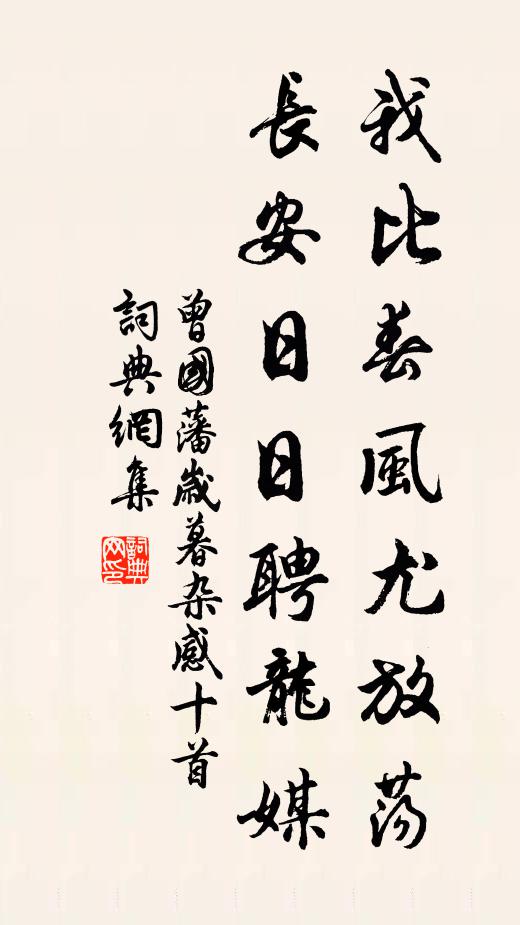 我比春風尤放蕩
長安日日聘龍媒
曾國藩歲暮杂感十首
詞典網集
詞典网印